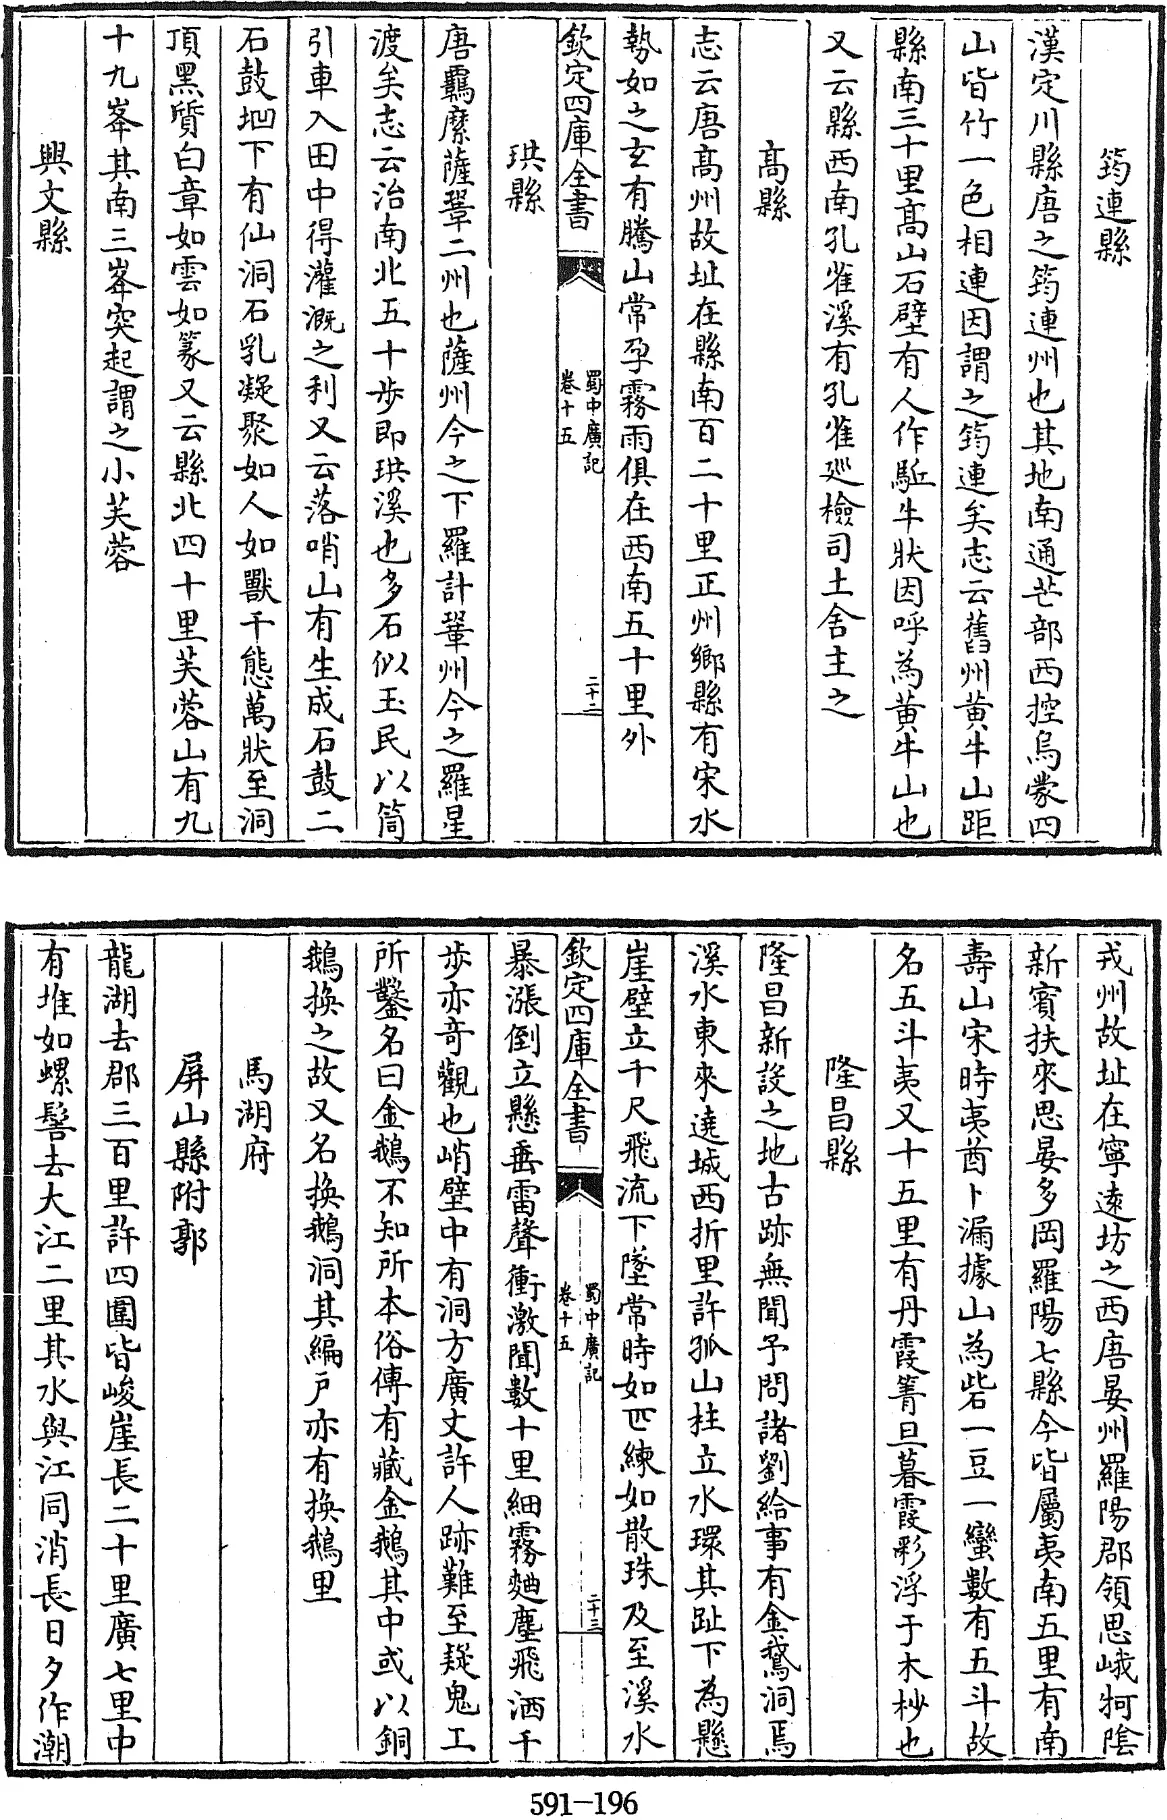 筠連縣
漢定川縣唐之筠連州也其地南通芒部西控烏蒙四
山皆竹一色相連因謂之筠連矣志云舊州黄牛山距
縣南三十里髙山石壁有人作駈牛狀因呼為黄牛山也
又云縣西南孔雀溪有孔雀廵檢司土舍主之
髙縣
志云唐髙州故址在縣南百二十里正州鄉縣有宋水
勢如之玄有騰山常孕霧雨俱在西南五十里外
欽定四庫全書
蜀中廣記
卷十五
二十二
珙縣
唐羈縻薩鞏二州也薩州今之下羅計鞏州今之羅星
渡矣志云治南北五十歩即珙溪也多石似玉民以筒
引車入田中得灌溉之利又云落哨山有生成石鼓二
石鼓坳下有仙洞石乳凝聚如人如獸千態萬狀至洞
頂黑質白章如雲如篆又云縣北四十里芙蓉山有九
十九峯其南三峯突起謂之小芙蓉
興文縣
戎州故址在寧逺坊之西唐晏州羅陽郡領思峨牱隂
新賓扶來思晏多岡羅陽七縣今皆屬夷南五里有南
壽山宋時夷酋卜漏據山為砦一豆一蠻數有五斗故
名五斗夷又十五里有丹霞箐旦暮霞彩浮于木杪也
隆昌縣
隆昌新設之地古跡無聞予問諸劉給事有金鵝洞焉
溪水東來遶城西折里許孤山柱立水環其趾下為懸
崖壁立千尺飛流下墜常時如匹練如散珠及至溪水
欽定四庫全書
蜀中廣記
卷十五
二十三
暴漲倒立懸垂雷聲衝激聞數十里細霧麯塵飛洒千
歩亦竒觀也峭壁中有洞方廣丈許人跡難至疑鬼工
所鑿名曰金鵝不知所本俗傳有藏金鵝其中或以銅
鵝换之故又名换鵝洞其編戸亦有换鵝里
馬湖府
屏山縣附郭
龍湖去郡三百里許四圍皆峻崖長二十里廣七里中
有堆如螺髻去大江二里其水與江同消長日夕作潮
591-196